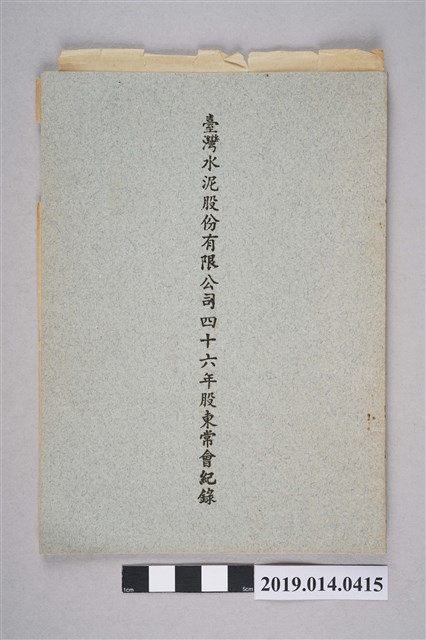 臺灣水泥股份有限公司四十六年股東常會紀錄
1cm
5cm
2019.014.0415